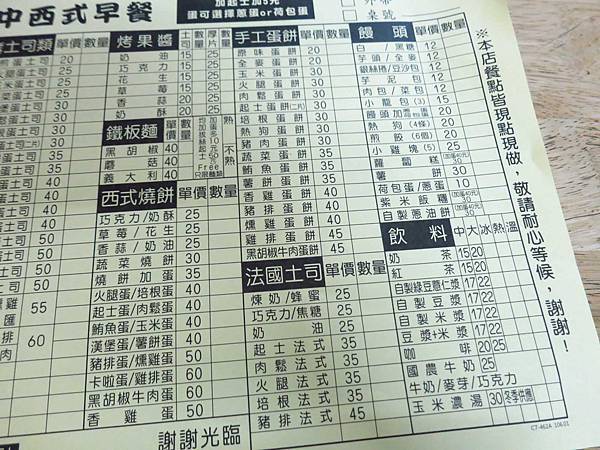 中西式早餐
加起士加5元
蛋可選擇蔥蛋or荷包蛋
桌號
土司類 單價 數量
20
30
30
30
30
50
50
50
55
60
烤果醬 土司 厚片 數量
奶油 15 25
巧克力 15 25
花生 15 25
草莓 15 25
香蒜 20
奶酥 20
鐵板麵 單價 熟 不熟
黑胡椒 40
蘑菇 40
義大利 40
西式燒餅 單價 數量
巧克力/奶酥 25
草莓/花生 25
香蒜/奶油 25
蔬菜燒餅 30
燒餅加蛋 35
火腿蛋/培根蛋 40
起士蛋/肉鬆蛋 40
鮪魚蛋/玉米蛋 40
漢堡蛋/薯餅蛋 40
豬排蛋/燻雞蛋 50
卡啦蛋/雞排蛋 60
黑胡椒牛肉蛋 60
香雞蛋 50
手工蛋餅 單價 數量
原味蛋餅 20
全麥蛋餅 20
玉米蛋餅 30
火腿蛋餅 30
肉鬆蛋餅 30
起士蛋餅(二片) 30
培根蛋餅 30
熱狗蛋餅 30
豬肉蛋餅 35
蔬菜蛋餅 35
鮪魚蛋餅 35
薯餅蛋餅 35
香雞蛋餅 40
豬排蛋餅 40
燻雞蛋餅 40
雞排蛋餅 45
黑胡椒牛肉蛋餅 45
法國土司 單價 數量
煉奶/蜂蜜 25
巧克力/焦糖 25
奶油 25
起士法式 35
肉鬆法式 35
火腿法式 35
培根法式 35
豬排法式 45
饅頭 單價 數量
白/黑糖 12
芋頭/全麥 12
銀絲捲/豆沙包 12
芋泥包 12
肉包/菜包 12
小籠包(3) 15
饅頭加蛋 20
熱狗(4條) 20
煎餃(6個) 20
小雞塊(5) 25
蘿蔔糕 30
薯餅 30
荷包蛋/蔥蛋 10
紫米飯糰 30
自製蔥油餅 30
飲料 中 大 冰 熱 溫
奶茶 15 20
紅茶 15 20
自製綠豆薏仁漿 17 22
自製豆漿 17 22
自製米漿 17 22
豆漿+米漿 17 22
咖啡 20 25
國農牛奶 25
牛奶/麥芽/巧克力
玉米濃湯 30 冬季供應
※本店餐點皆現點現做，敬請耐心等候，謝謝！
謝謝光臨
CT-462A 106.01